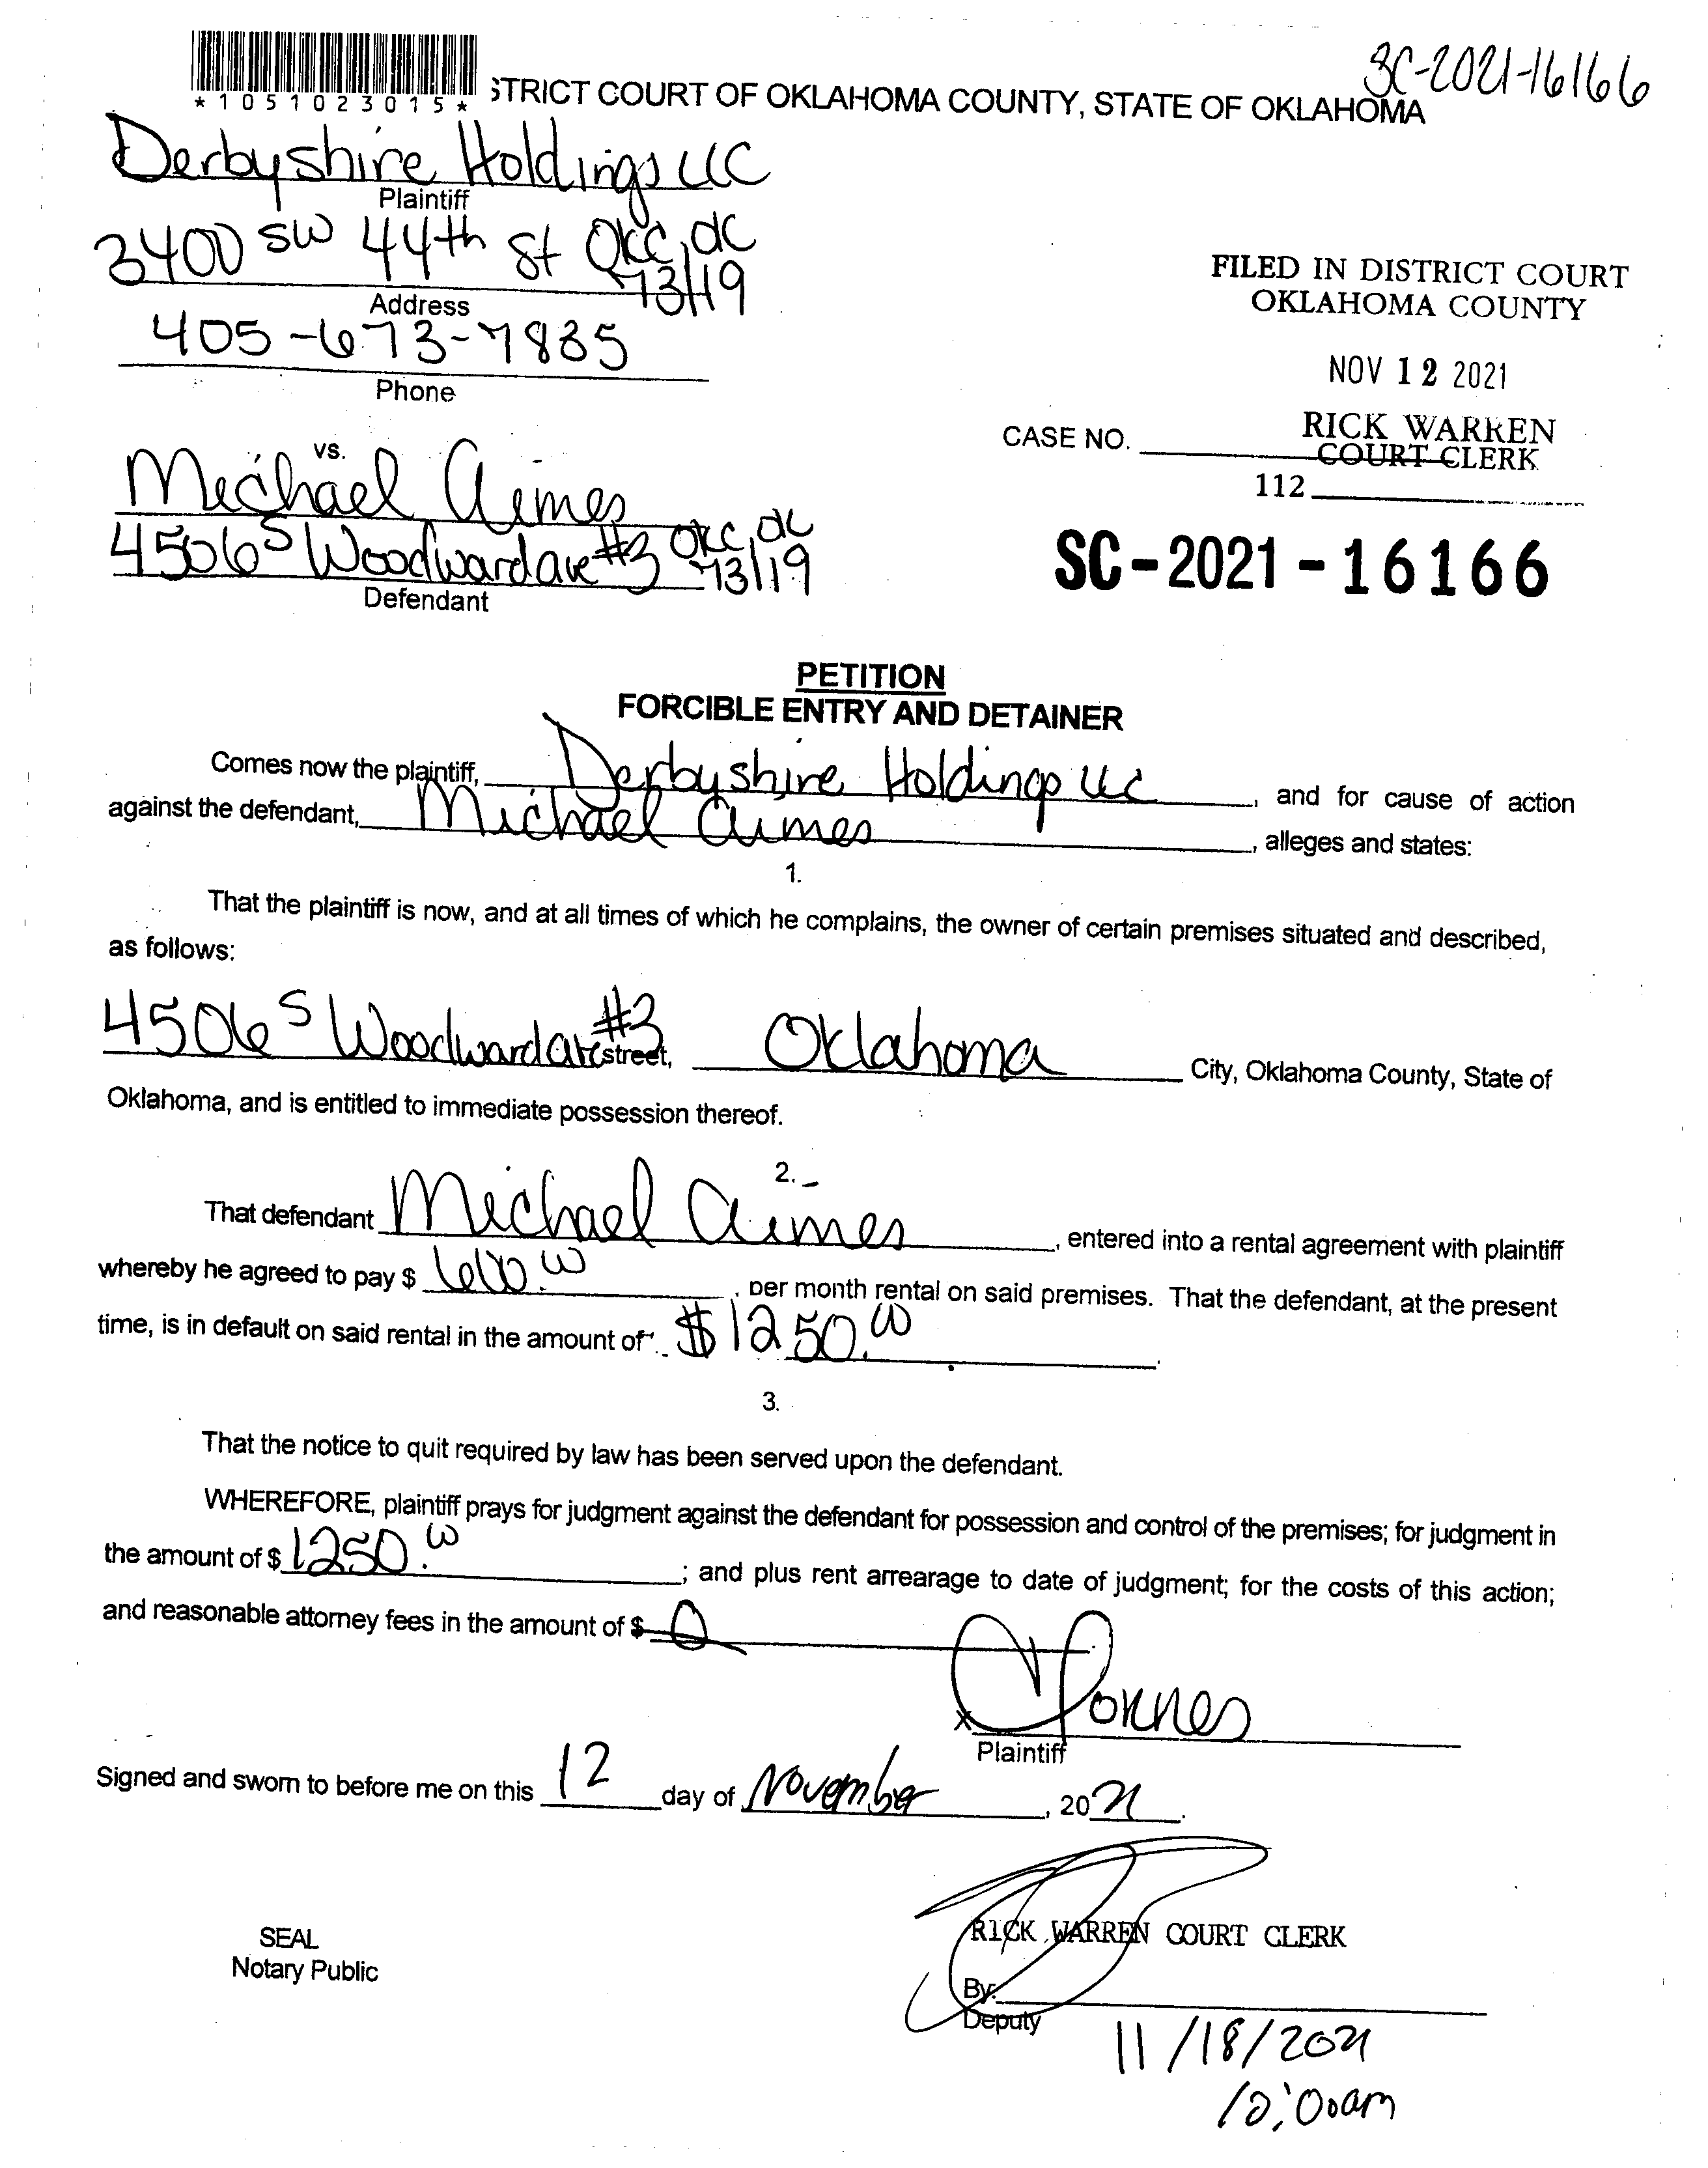 SC-2021-16166
*1051023015* STRICT COURT OF OKLAHOMA COUNTY, STATE OF OKLAHOMA
Derbyshire Holdings LLC
Plaintiff
3400 SW 44th St OKC, OK
73119
Address
405-673-7835
Phone
FILED IN DISTRICT COURT
OKLAHOMA COUNTY
NOV 12 2021
RICK WARREN
COURT CLERK
CASE NO.
112
SC-2021-16166
vs.
Michael Aimes
4506 S Woodward ave #3 OKC, OK
73119
Defendant
PETITION
FORCIBLE ENTRY AND DETAINER
Comes now the plaintiff, Derbyshire Holdings LLC, and for cause of action
against the defendant, Michael Aimes, alleges and states:
1.
That the plaintiff is now, and at all times of which he complains, the owner of certain premises situated and described,
as follows:
4506 S Woodward ave #3 street, Oklahoma City, Oklahoma County, State of
Oklahoma, and is entitled to immediate possession thereof.
2.
That defendant Michael Aimes, entered into a rental agreement with plaintiff
whereby he agreed to pay $ 600.00, per month rental on said premises. That the defendant, at the present
time, is in default on said rental in the amount of $1250.00.
3.
That the notice to quit required by law has been served upon the defendant.
WHEREFORE, plaintiff prays for judgment against the defendant for possession and control of the premises; for judgment in
the amount of $ 1250.00; and plus rent arrearage to date of judgment; for the costs of this action;
and reasonable attorney fees in the amount of $ 0.
x
Plaintiff
Signed and sworn to before me on this 12 day of November, 2021.
SEAL
Notary Public
RICK WARREN COURT CLERK
By:
Deputy
11/18/2021
10:00am